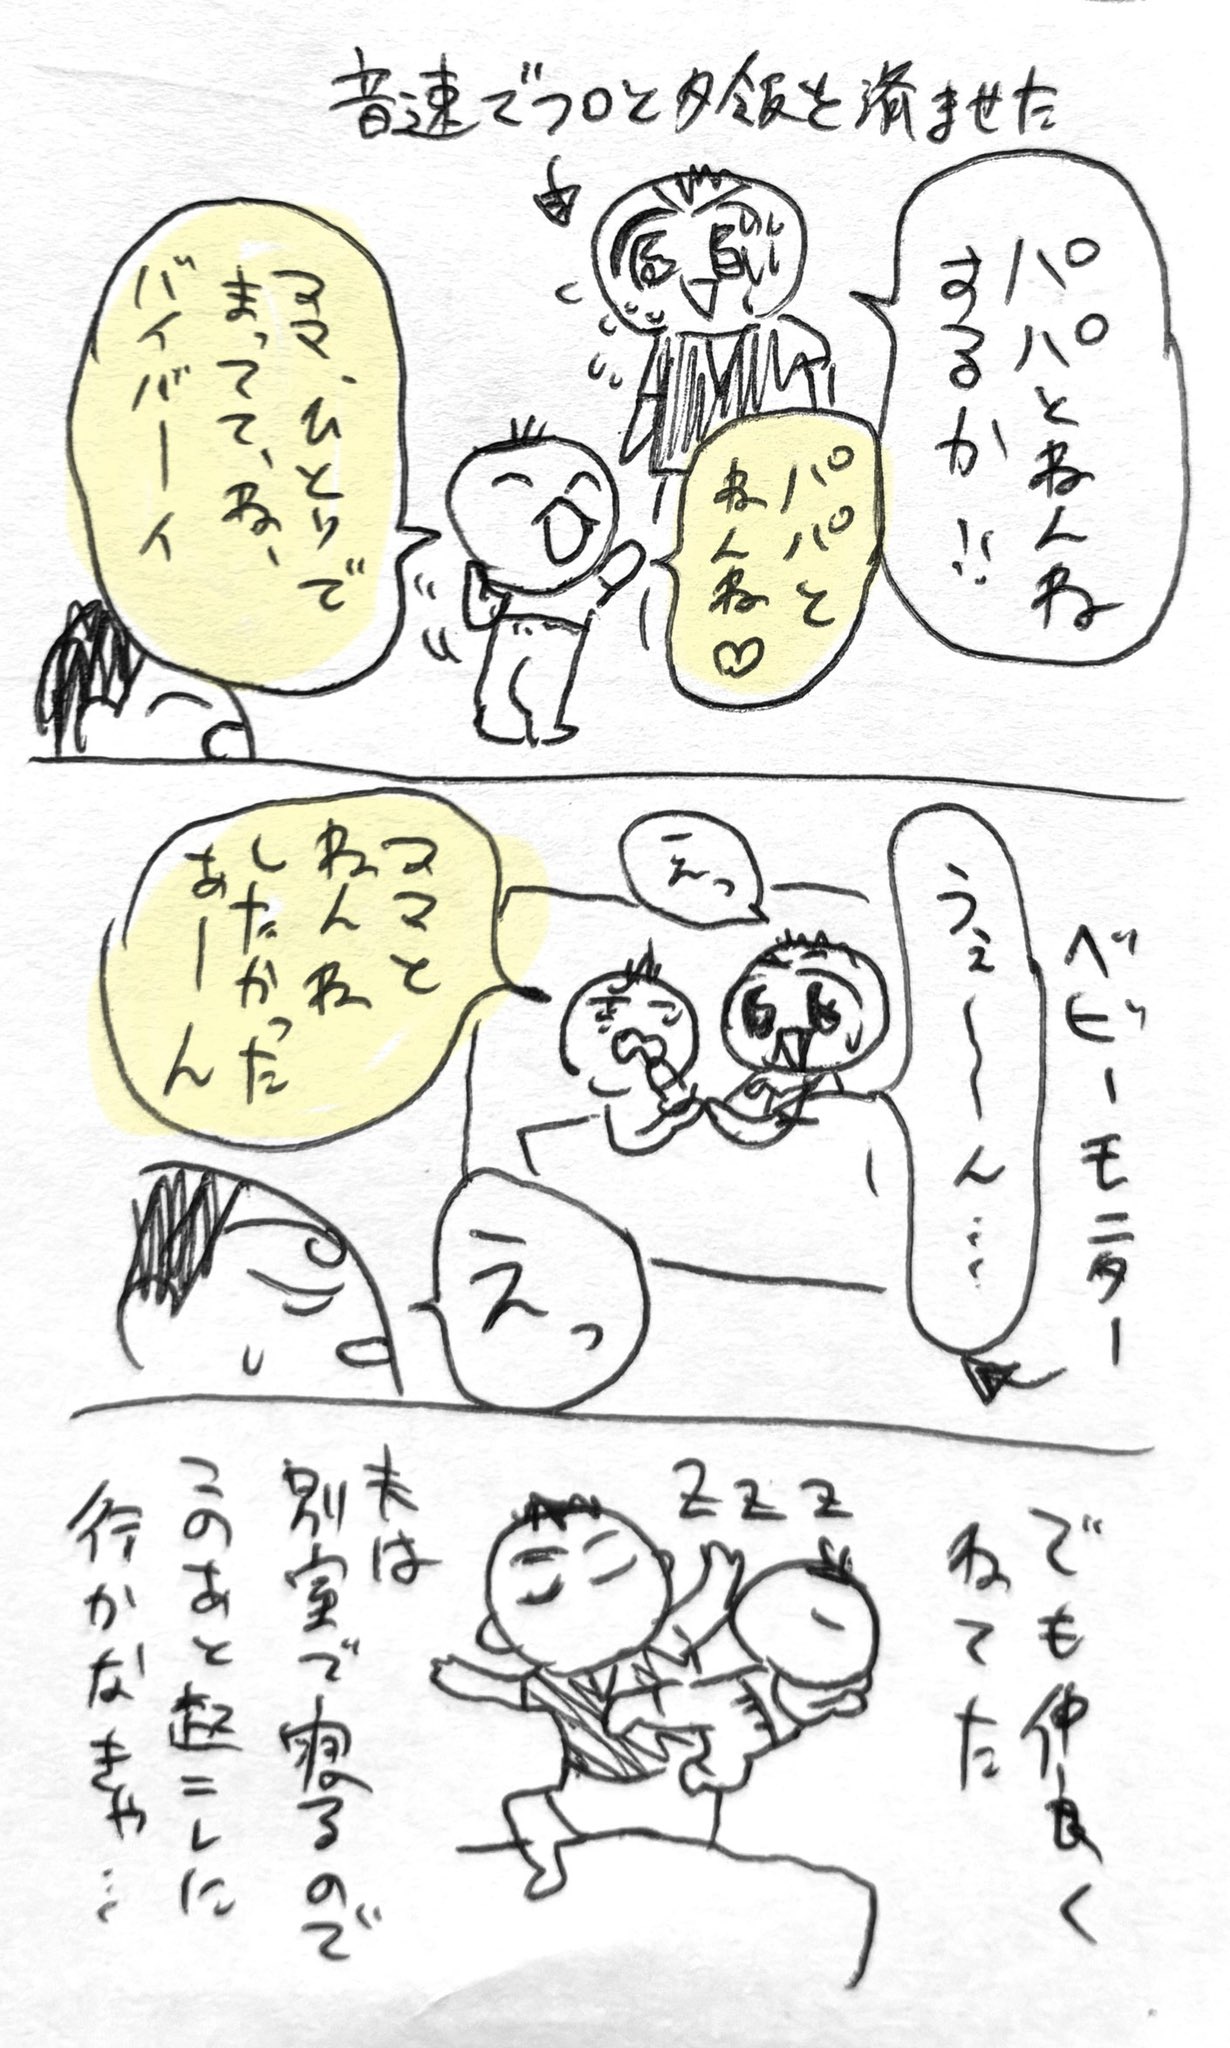 音速でフロと夕飯を済ませた
パパとねんね
するか!!
パパと
ねんね♡
ママ、ひとりで
まってて、ね、
バイバーイ
ベビーモニター
うぇ〜〜〜ん…
えっ
ママと
ねんね
したかった
あーーん
えっ
でも仲良く
ねてた
ZZZ
夫は
別室で寝るので
このあと起こしに
行かなきゃ…